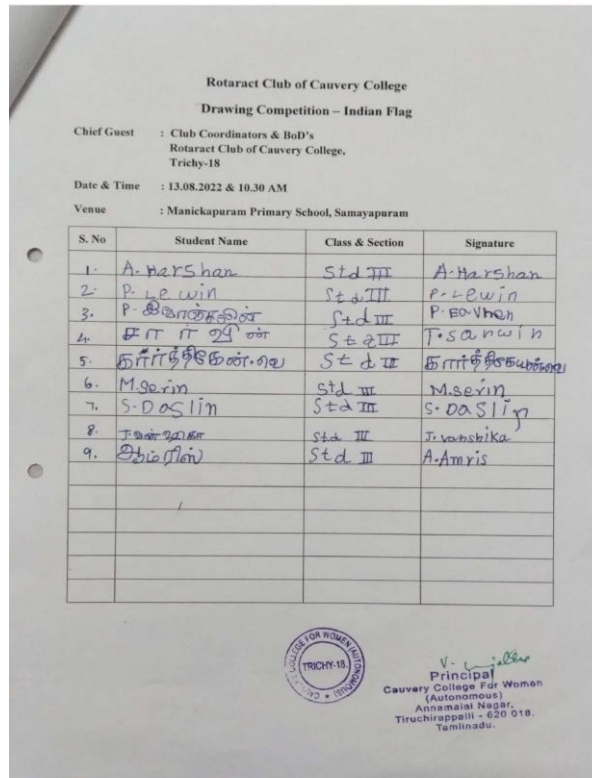 Rotaract Club of Cauvery College
Drawing Competition – Indian Flag
Chief Guest : Club Coordinators & BoD's
Rotaract Club of Cauvery College,
Trichy-18
Date & Time : 13.08.2022 & 10.30 AM
Venue : Manickapuram Primary School, Samayapuram
S. No Student Name Class & Section Signature
1. A. Harshan Std III A. Harshan
2. P. Lewin Std III P. Lewin
3. P. Std III P.
4. Std III T. Sanwin
5. Std III
6. M. Serin Std III M. Serin
7. S. Daslin Std III S. Daslin
8. J. Std III J. Vanshika
9. ஆம்ரிஸ் Std III A. Amris
CAUVERY COLLEGE FOR WOMEN (AUTONOMOUS)
TRICHY-18.
Principal
Cauvery College For Women
(Autonomous)
Annamalai Nagar,
Tiruchirappalli - 620 018.
Tamilnadu.